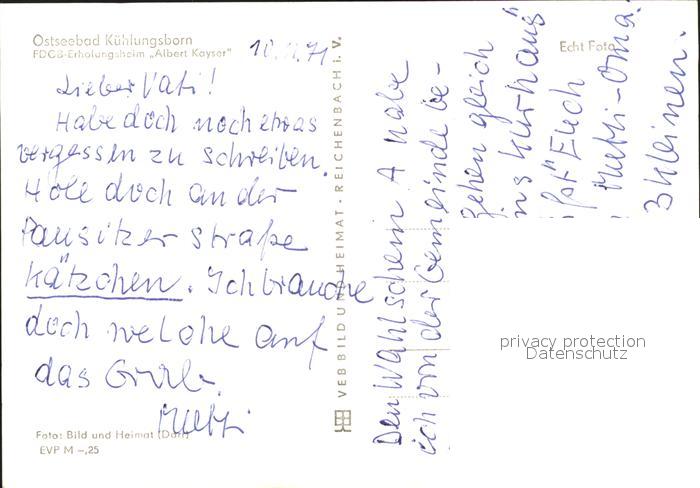 Ostseebad Kühlungsborn
FDGB-Erholungsheim „Albert Kayser"
10.11.71
Lieber Vati!
Habe doch noch etwas
vergessen zu schreiben.
Hole doch an der
Pausitzer Straße
Kätzchen. Ich brauche
doch welche auf
das Grab.
Mutti
Foto: Bild und Heimat (Darr)
EVP M –,25
VEB BILD UND HEIMAT · REICHENBACH i. V.
Echt Foto
Den Wahlschein A habe
ich von der Gemeinde be-
gehen gleich
ins Kurhaus
Euch
Mutti-Oma.
3 kleinen.
privacy protection
Datenschutz